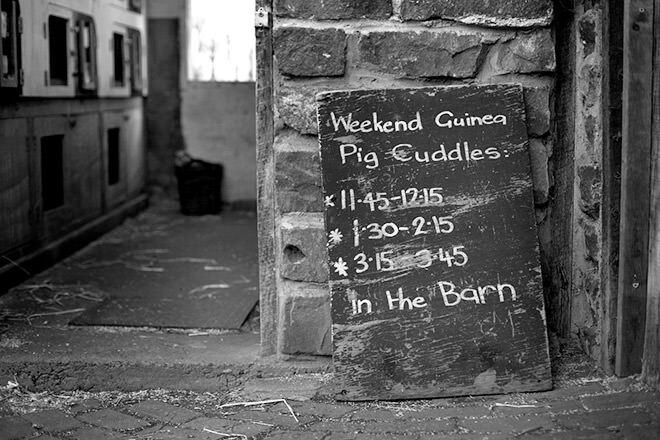 Weekend Guinea
Pig Cuddles:
* 11.45-12.15
* 1.30-2.15
* 3.15-3.45
in the Barn